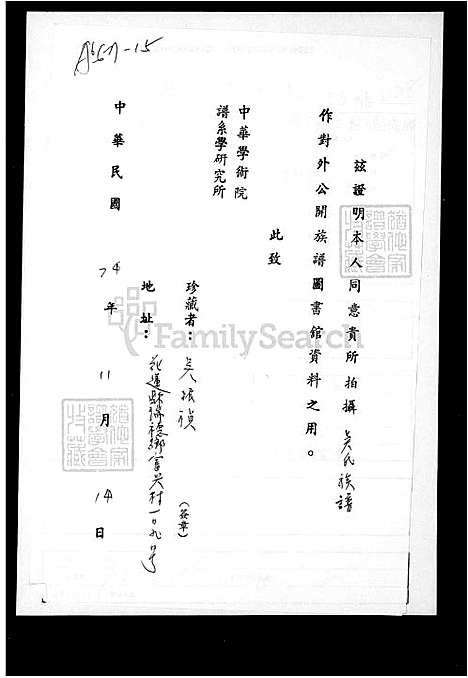 茲證明本人同意貴所拍攝吳氏族譜
作對外公開族譜圖書館資料之用。
此致
中華學術院
譜系學研究所
珍藏者：吳振禎
(簽章)
地址：花蓮縣瑞穗鄉富興村一0九號
中華民國 74年 11月 14日
FamilySearch